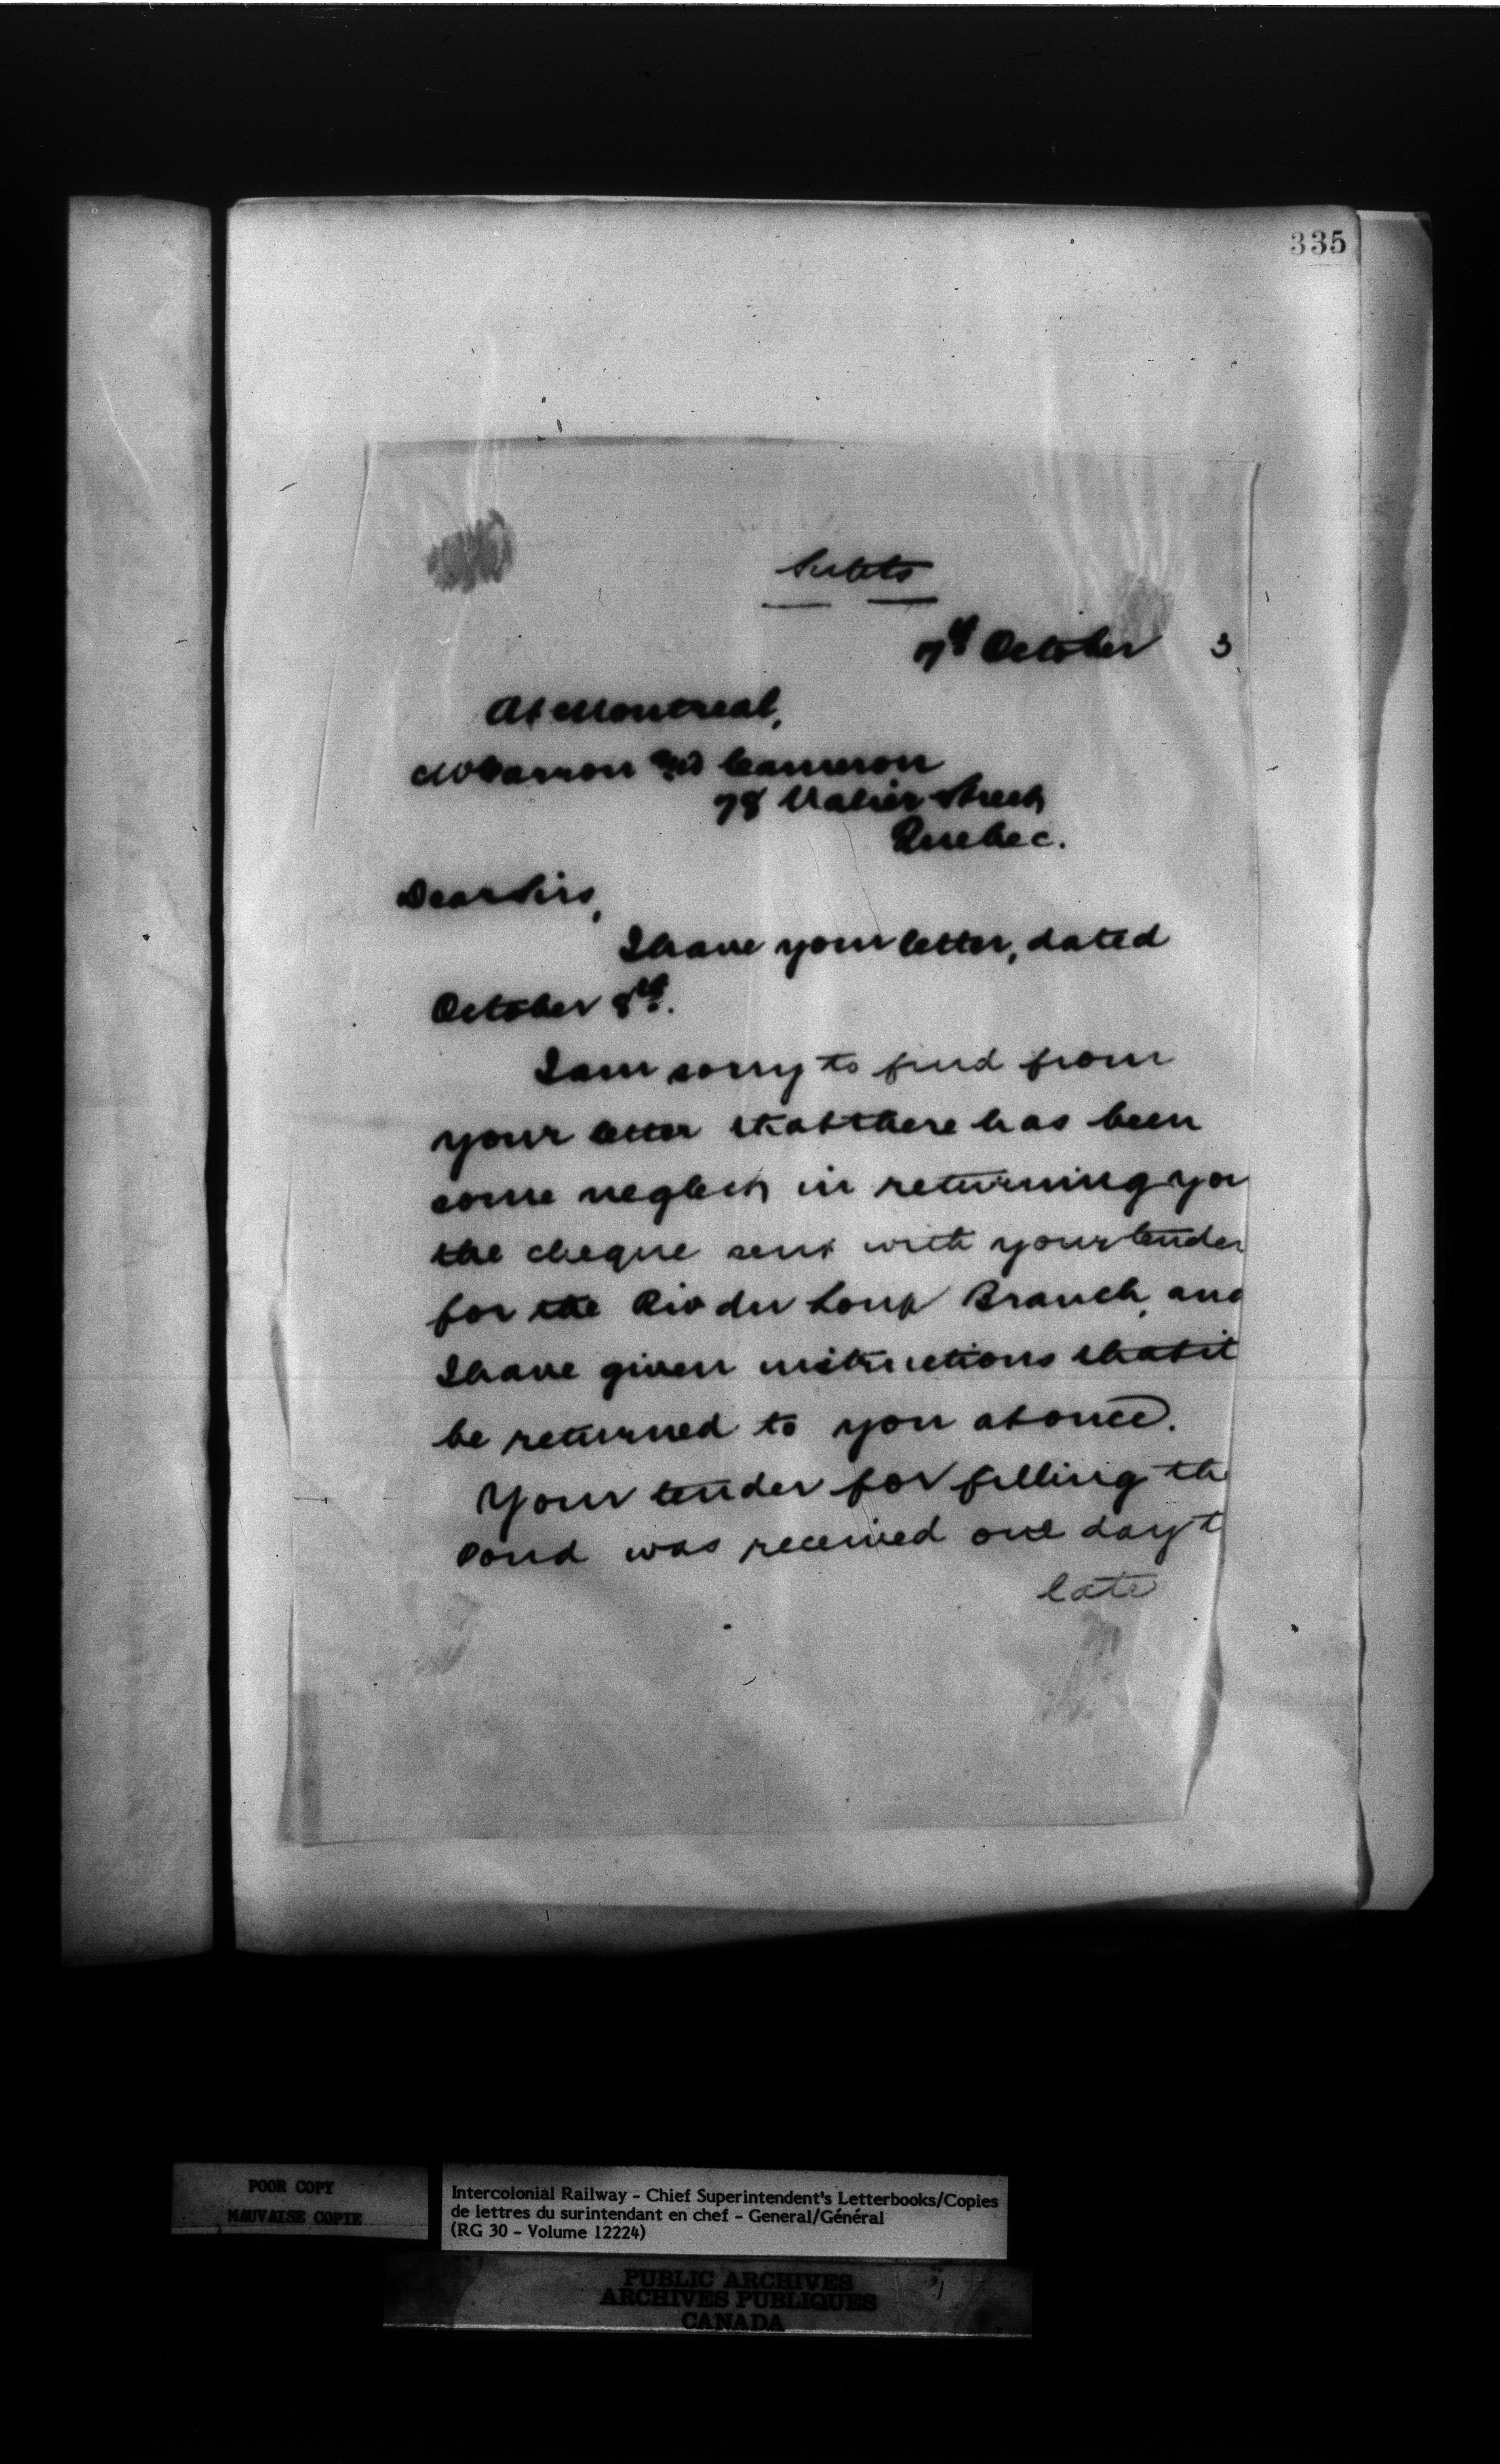 335
Supts
7th October 3
At Montreal,
McCarron and Cameron
78 Valier Street
Quebec.
Dear Sirs,
I have your letter, dated
October 8th.
I am sorry to find from
your letter that there has been
some neglect in returning yo
the cheque sent with your tender
for the Riv du Loup Branch, and
I have given instructions that it
be returned to you at once.
Your tender for filling the
Pond was received one day t
late
POOR COPY
MAUVAISE COPIE
Intercolonial Railway - Chief Superintendent's Letterbooks/Copies
de lettres du surintendant en chef - General/Général
(RG 30 - Volume 12224)
PUBLIC ARCHIVES
ARCHIVES PUBLIQUES
CANADA